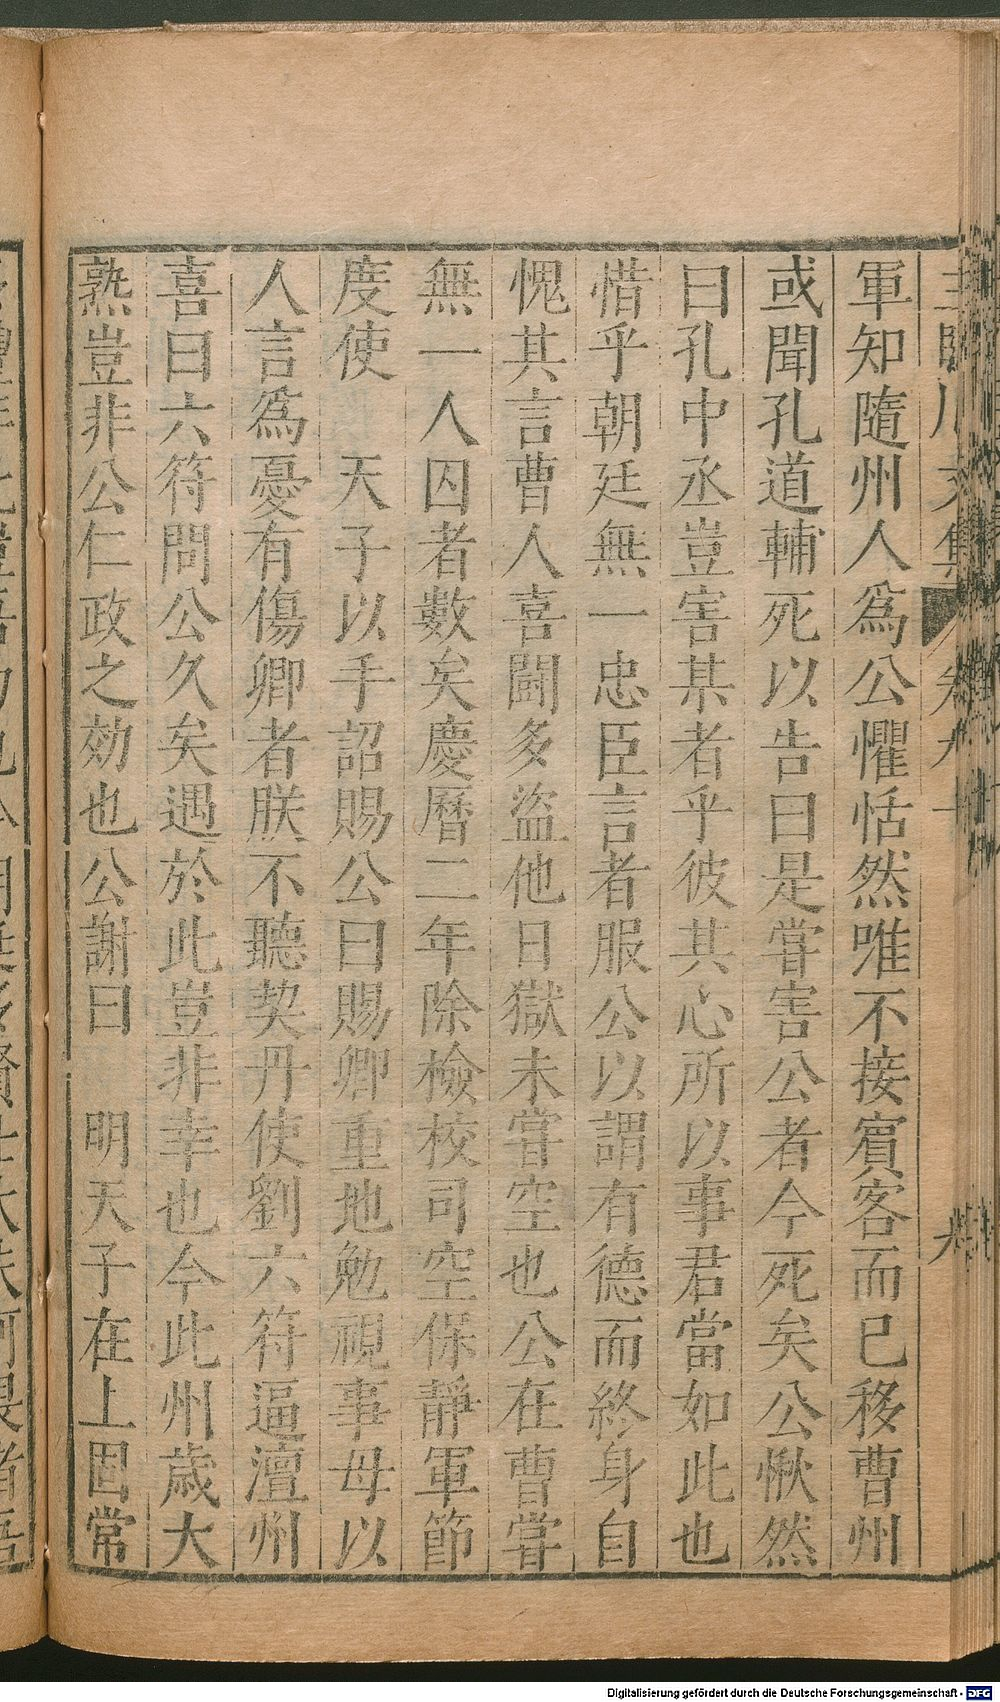 軍知隨州人爲公懼恬然唯不接賓客而已移曹州
或聞孔道輔死以告曰是嘗害公者今死矣公愀然
曰孔中丞豈害某者乎彼其心所以事君當如此也
惜乎朝廷無一忠臣言者服公以謂有德而終身自
愧其言曹人喜鬬多盜他日獄未嘗空也公在曹嘗
無一人囚者數矣慶曆二年除檢校司空保靜軍節
度使 天子以手詔賜公曰賜卿重地勉視事毋以
人言爲憂有傷卿者朕不聽契丹使劉六符逼澶州
喜曰六符問公久矣遇於此豈非幸也今此州歲大
熟豈非公仁政之効也公謝曰 明天子在上固常
Digitalisierung gefördert durch die Deutsche Forschungsgemeinschaft - DFG